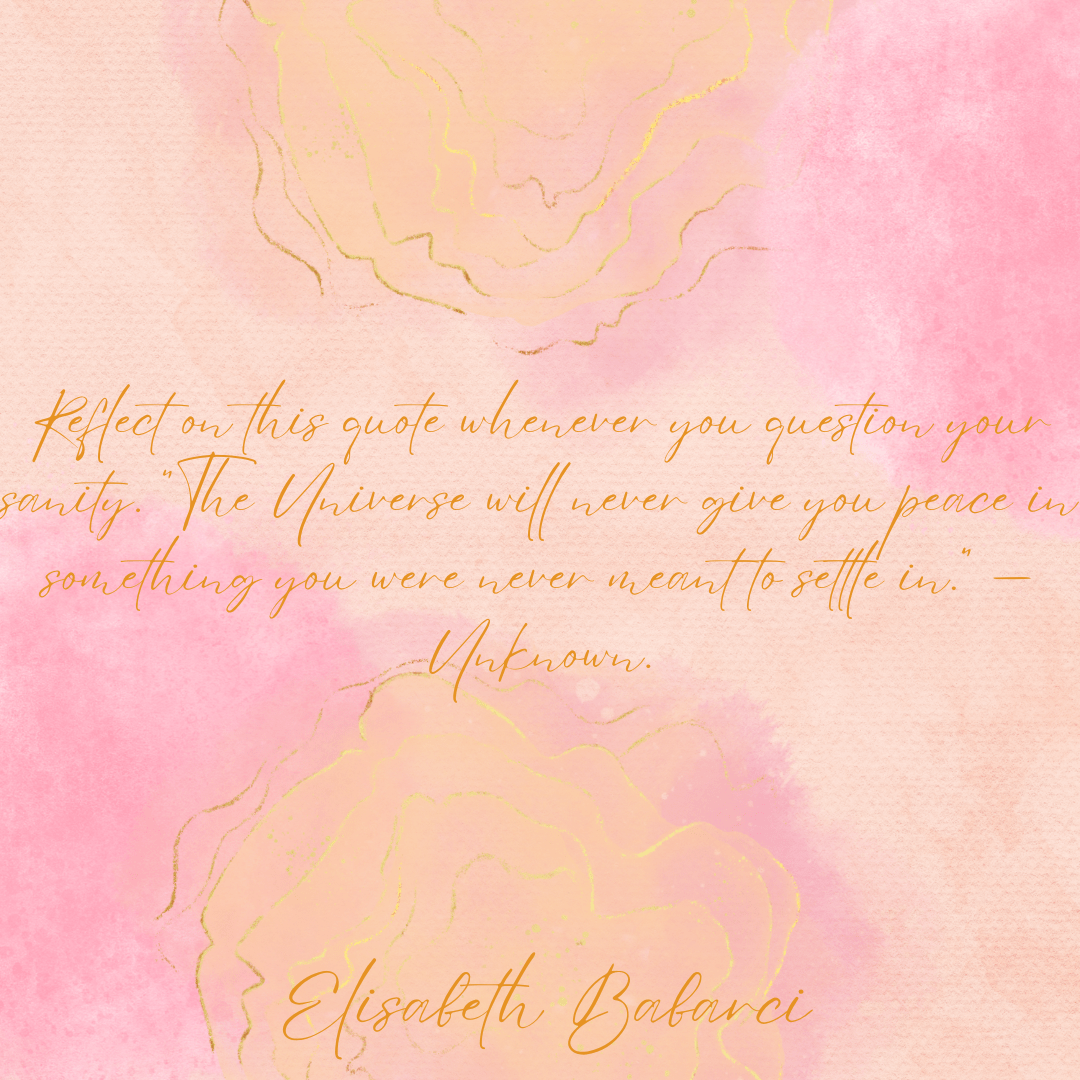 Reflect on this quote whenever you question your
sanity. "The Universe will never give you peace in
something you were never meant to settle in." —
Unknown.
Elisabeth Babarci